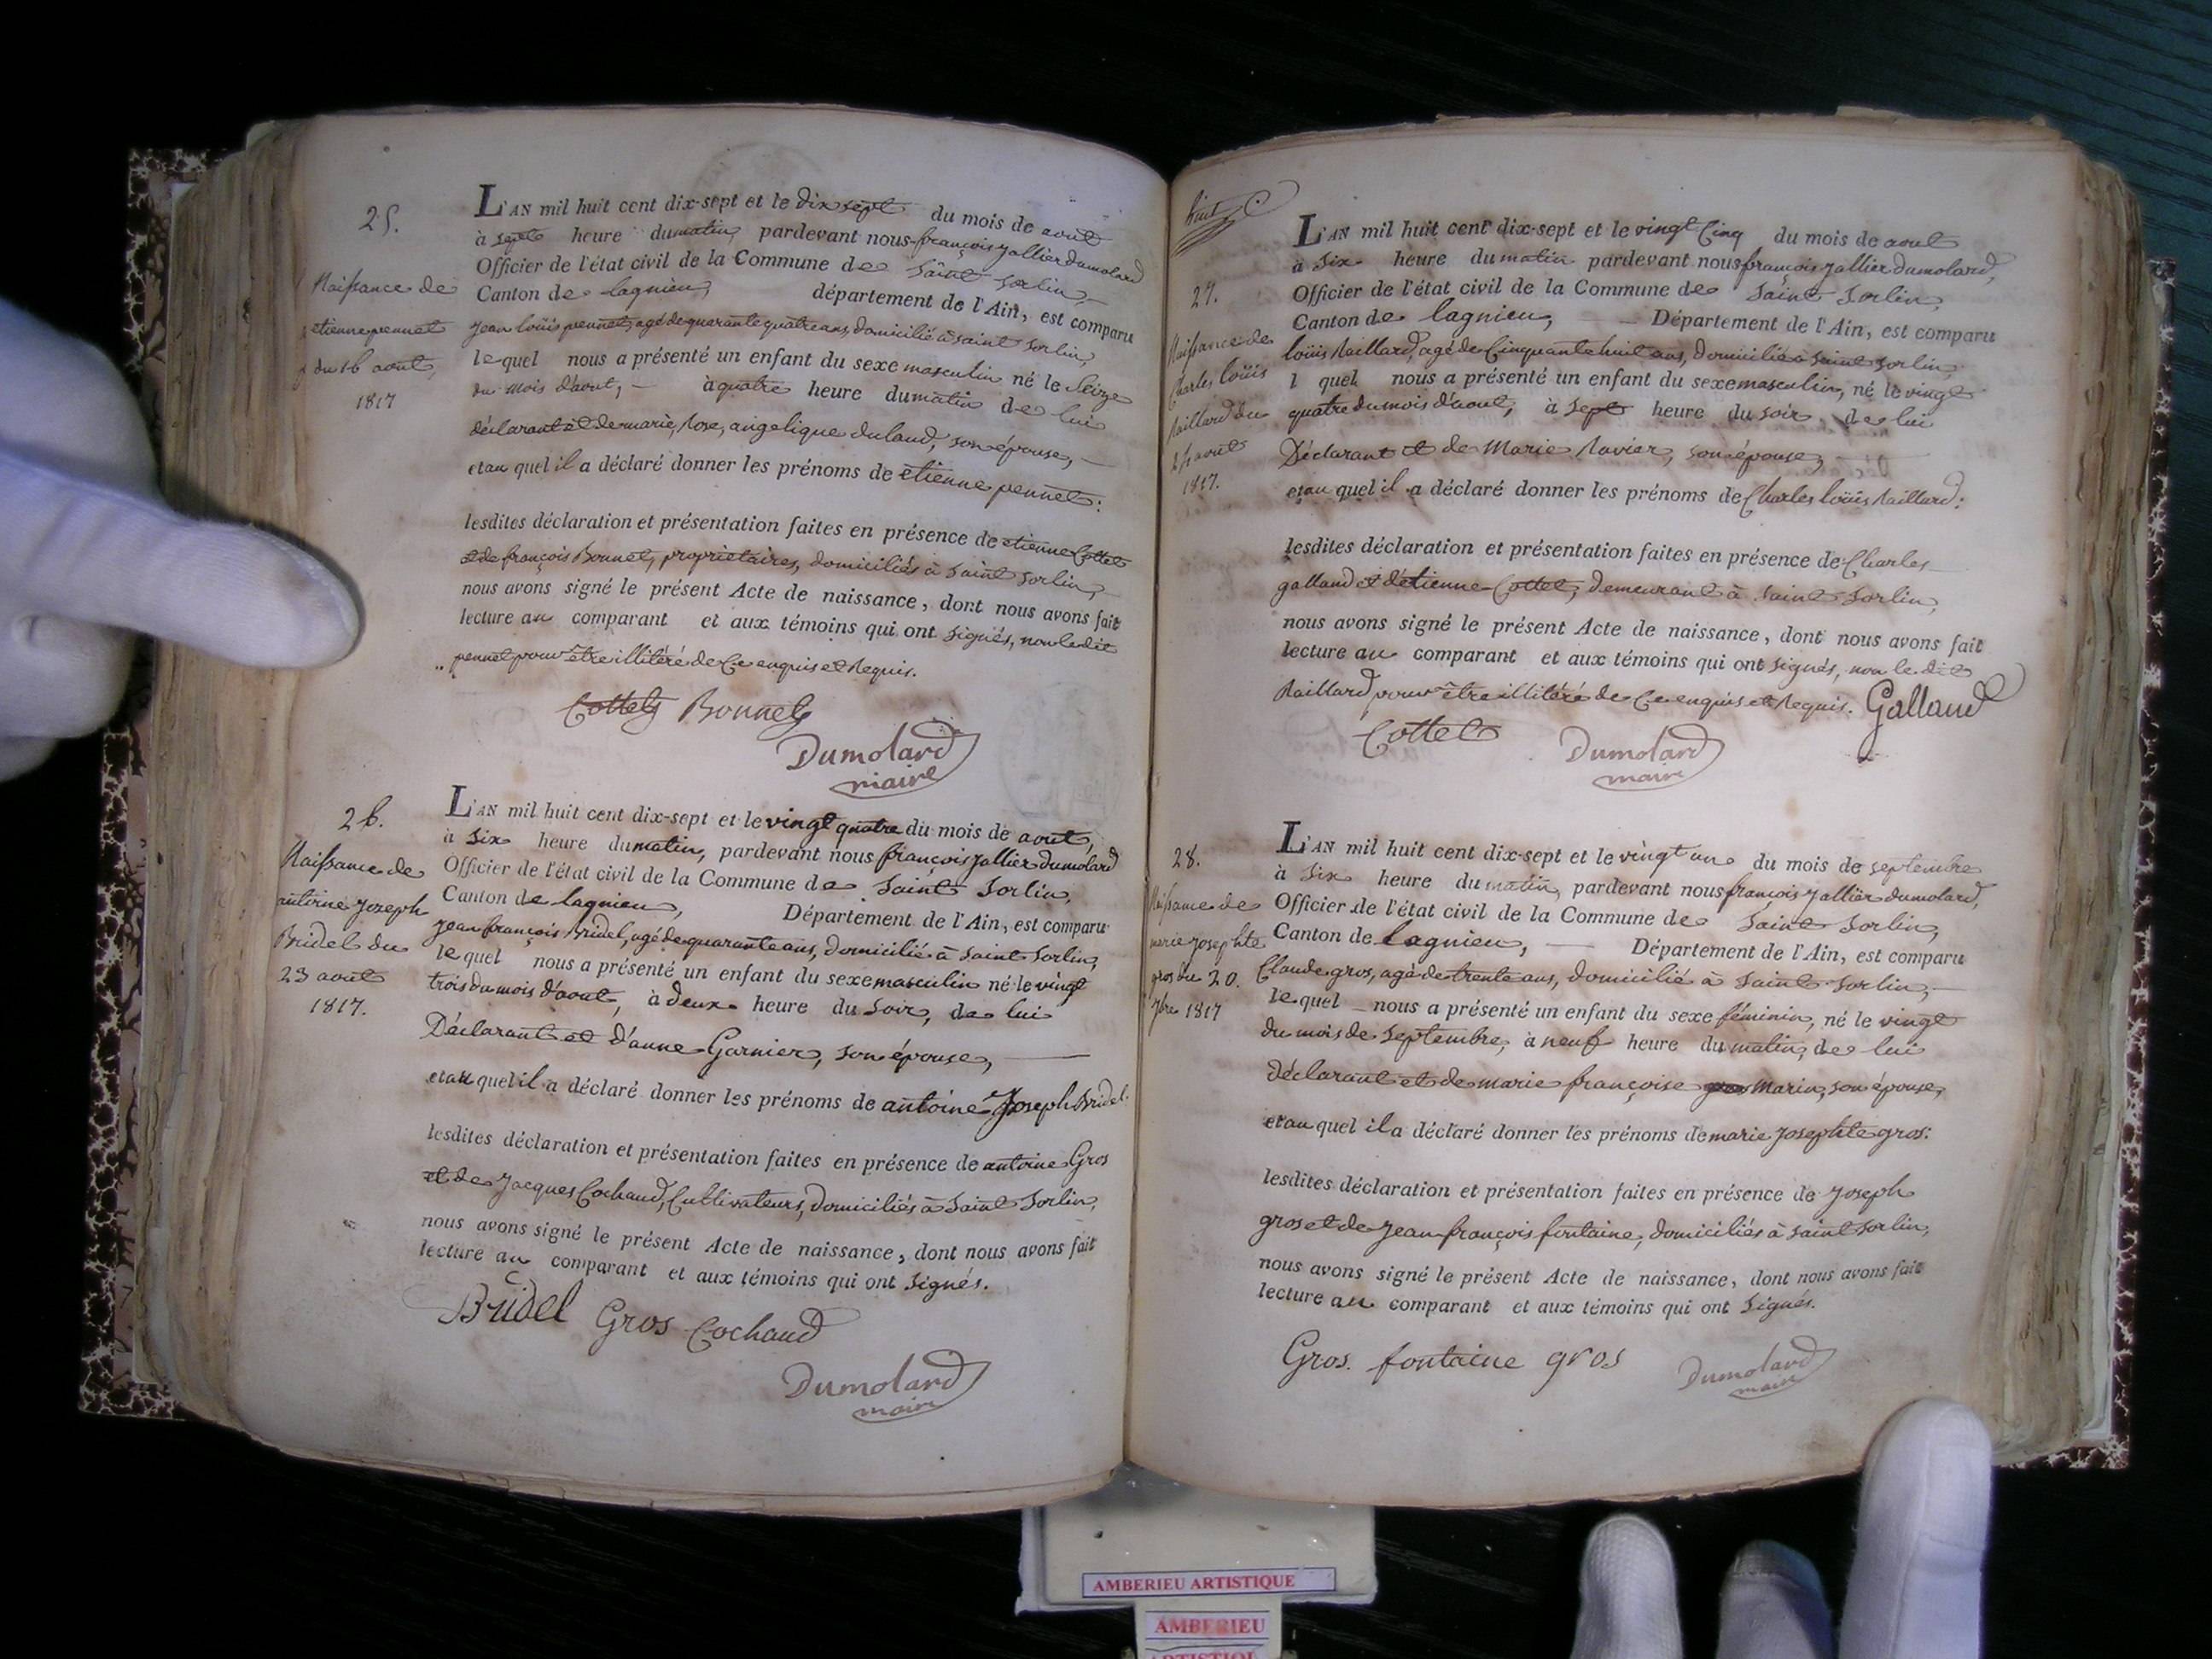 25.
Naissance de
etienne pennet
du 16 aout,
1817
L'AN mil huit cent dix-sept et le dix sept du mois de aout
à sept heure du matin, pardevant nous françois jallier dumolard
Officier de l'état civil de la Commune de Saint Sorlin,
Canton de lagnieu, département de l'Ain, est comparu
jean loüis pennet, agé de quarante quatre ans, domicilié à saint sorlin,
lequel nous a présenté un enfant du sexe masculin né le seize
du mois d'aout, à quatre heure du matin de lui
déclarant et de marie, rose, angelique dulaud, son épouse,
et au quel il a déclaré donner les prénoms de etienne pennet:
lesdites déclaration et présentation faites en présence de etienne Cottet
et de françois Bonnet, proprietaires, domiciliés à saint sorlin,
nous avons signé le présent Acte de naissance, dont nous avons fait
lecture au comparant et aux témoins qui ont signés, non le dit
pennet pour être illitéré de Ce enquis et requis.
Cottet Bonnet
Dumolard
maire
26.
Naissance de
antoine joseph
Bridel du
23 aout
1817.
L'AN mil huit cent dix-sept et le vingt quatre du mois de aout,
à six heure du matin, pardevant nous françois jallier dumolard
Officier de l'état civil de la Commune de Saint Sorlin,
Canton de lagnieu, Département de l'Ain, est comparu
jean françois Bridel, agé de quarante ans, domicilié à saint sorlin,
lequel nous a présenté un enfant du sexe masculin né le vingt
trois du mois d'aout, à deux heure du soir, de lui
Déclarant et d'anne Garnier, son épouse,
et au quel il a déclaré donner les prénoms de antoine Joseph Bridel.
lesdites déclaration et présentation faites en présence de antoine Gros
et de jacques Cochaud, Cultivateurs, domiciliés à Saint Sorlin,
nous avons signé le présent Acte de naissance, dont nous avons fait
lecture au comparant et aux témoins qui ont signés.
Bridel Gros Cochaud
Dumolard
maire
huit
27.
Naissance de
Charles loüis
Raillard du
aout
1817.
L'AN mil huit cent dix-sept et le vingt Cinq du mois de aout
à six heure du matin pardevant nous françois jallier dumolard,
Officier de l'état civil de la Commune de Saint Sorlin,
Canton de lagnieu, Département de l'Ain, est comparu
loüis Raillard, agé de Cinquante huit ans, domicilié à saint sorlin,
l quel nous a présenté un enfant du sexe masculin, né le vingt
quatre du mois d'aout, à sept heure du soir de lui
Déclarant et de Marie Ravier, son épouse,
et au quel il a déclaré donner les prénoms de Charles loüis Raillard:
lesdites déclaration et présentation faites en présence de Charles
galland et d'étienne Cottet, demeurant à Saint Sorlin,
nous avons signé le présent Acte de naissance, dont nous avons fait
lecture au comparant et aux témoins qui ont signés, non le dit
Raillard pour être illitéré de Ce enquis et Requis. Galland
Cottet Dumolard
maire
28.
Naissance de
marie josephte
gros du 20.
7bre 1817
L'AN mil huit cent dix-sept et le vingt un du mois de septembre
à six heure du matin, pardevant nous françois jallier dumolard,
Officier de l'état civil de la Commune de Saint Sorlin,
Canton de lagnieu, Département de l'Ain, est comparu
Claude gros, agé de trente ans, domicilié à Saint Sorlin,
le quel nous a présenté un enfant du sexe féminin, né le vingt
du mois de septembre, à neuf heure du matin, de lui
déclarant et de marie françoise Marin, son épouse,
et au quel il a déclaré donner les prénoms de marie josephte gros:
lesdites déclaration et présentation faites en présence de joseph
gros et de jean françois fontaine, domiciliés à saint sorlin,
nous avons signé le présent Acte de naissance, dont nous avons fait
lecture au comparant et aux témoins qui ont signés.
Gros. fontaine gros Dumolard
maire
AMBERIEU ARTISTIQUE
AMBERIEU
ARTISTIQUE